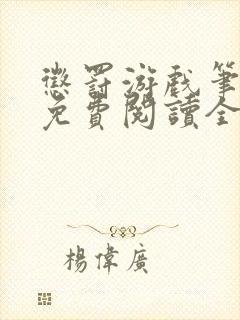 懲罰游戲筆
免費閱讀全
楊偉廣